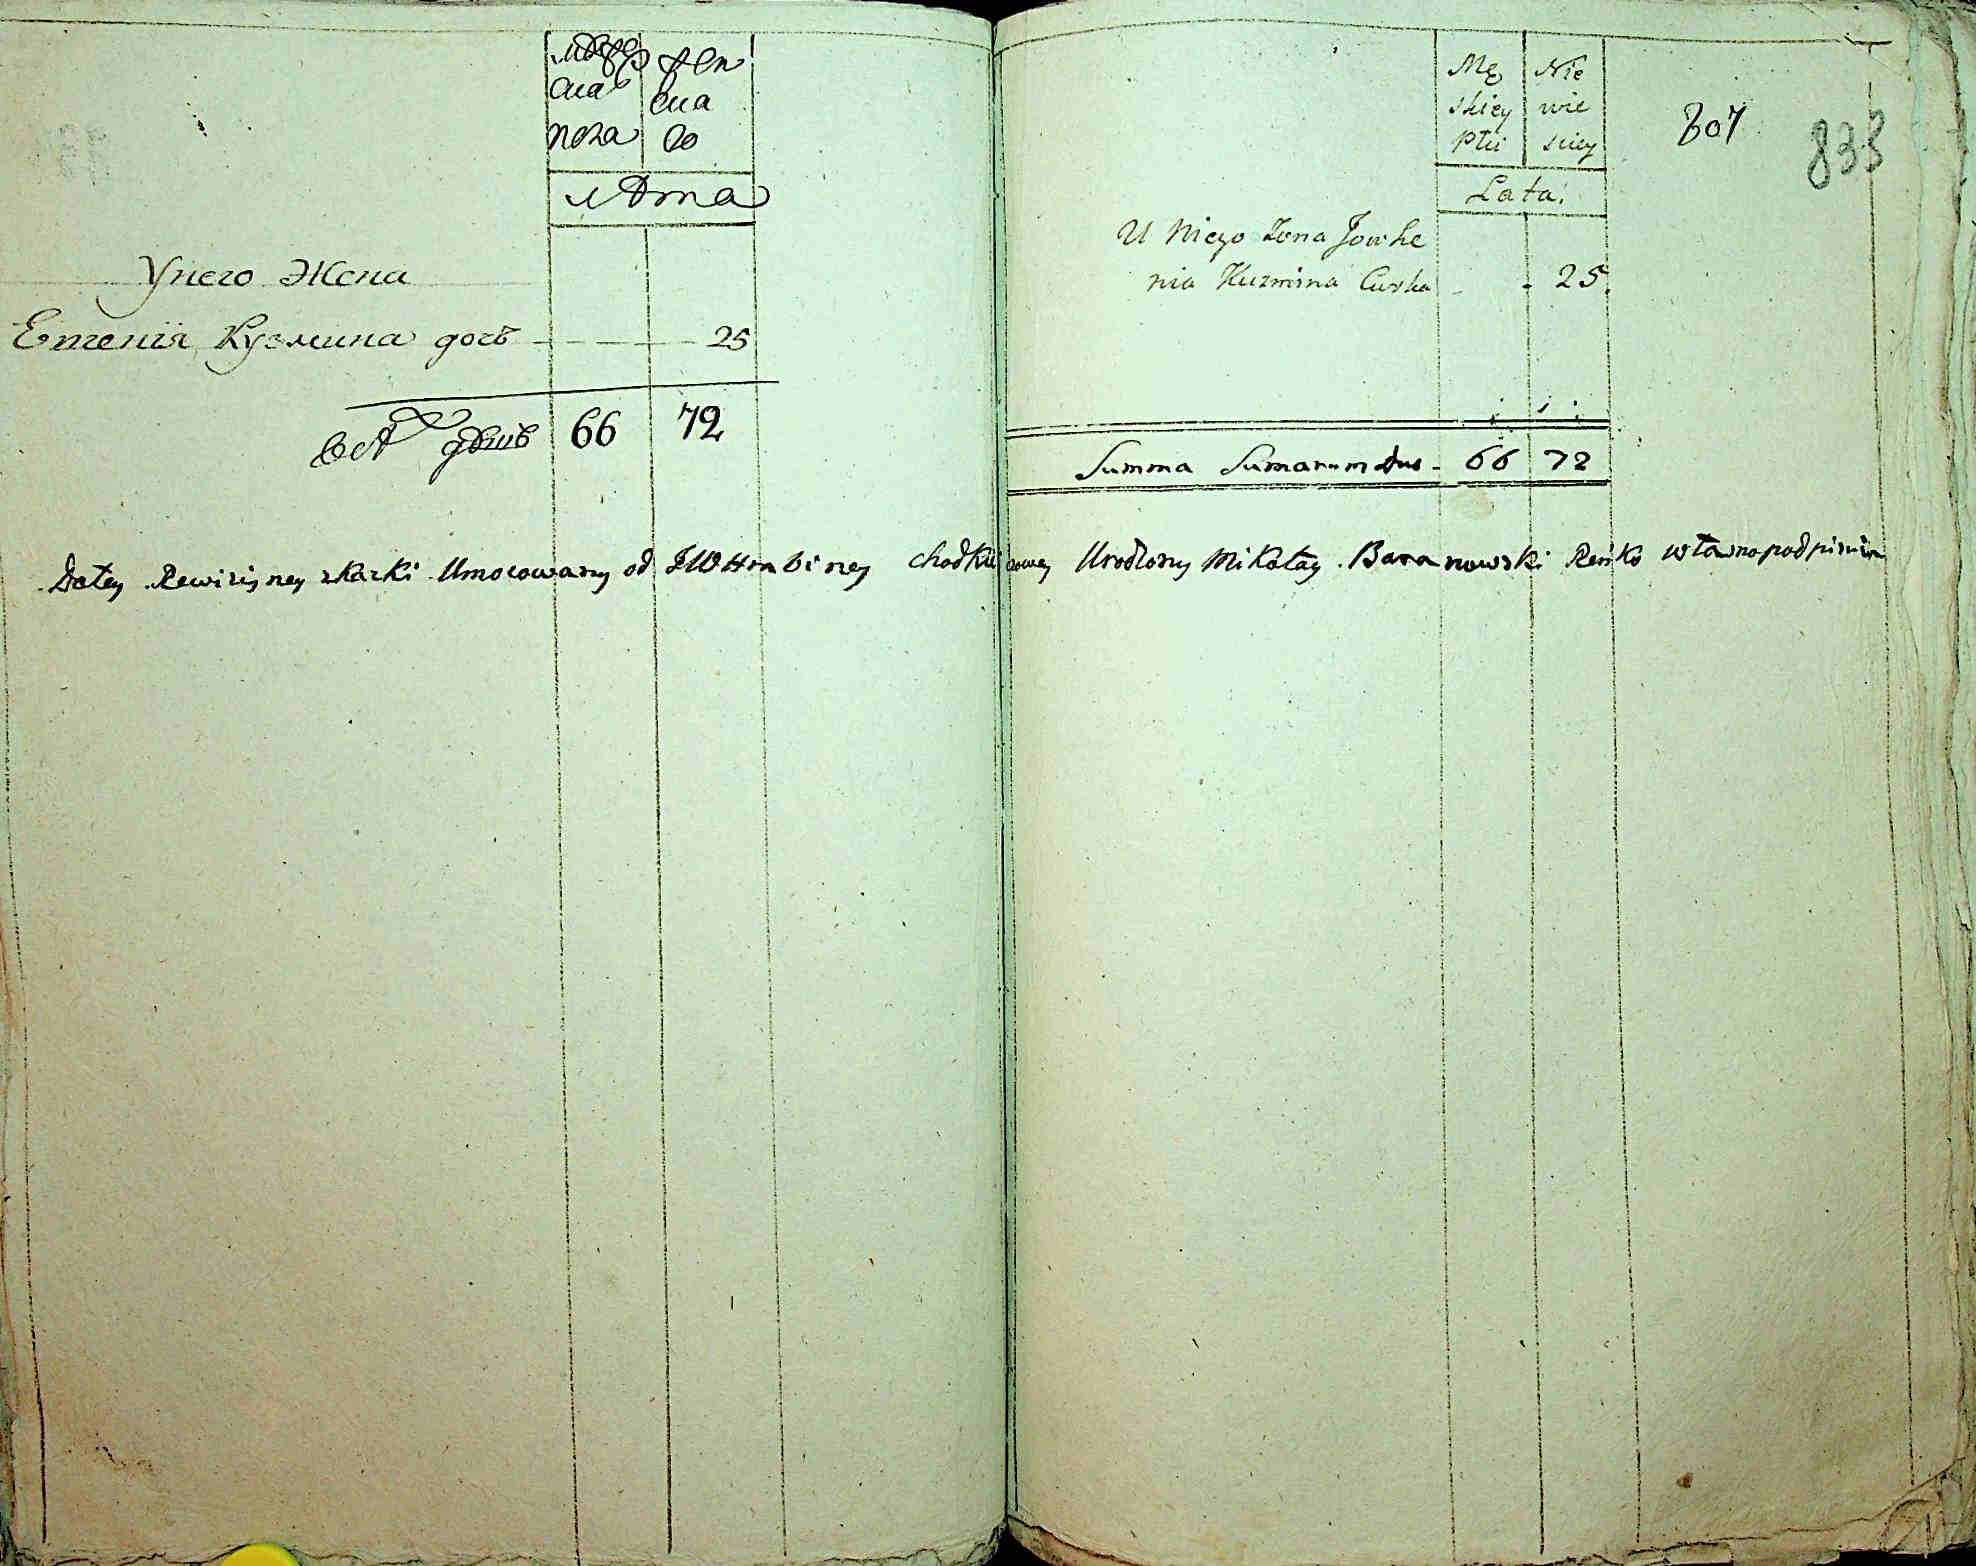 мужес
ска
пола
жен
ска
го
лѣта
У него Жена
Евгения Кузмина дочь 25
всѣхъ душъ 66 72
Mę
skiey
Płci
Nie
wie
sciey
Lata
807
833
U Niego Żona Jowhe
nia Kuzmina Curka - - 25.
Summa Sumarum dus - 66 72
Do tey Rewizyiney skazki Umocowany od JW Hrabiney Chodkiewiczowey Urodzony Mikołay Baranowski Ręnko własno podpisuie